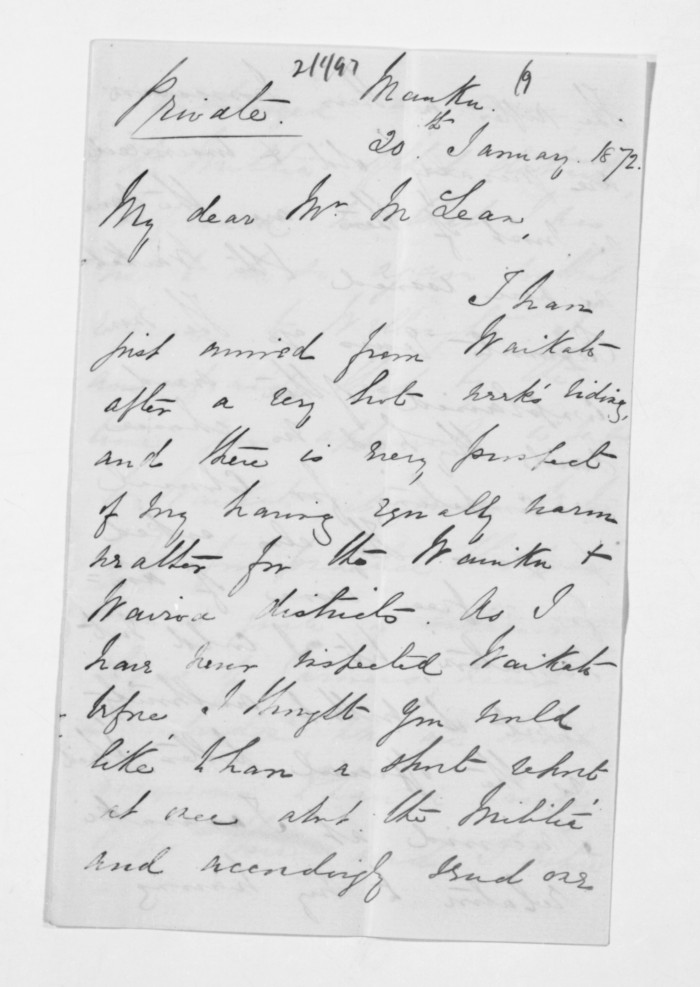 21/1/97
19
Private. Mauku.
20th January. 1872.
My dear Mr McLean,
I have
just arrived from Waikato
after a very hot week's riding,
and there is every prospect
of my having equally warm
weather for the Waiuku +
Wairoa districts. As I
have never inspected Waikato
before, I thought you would
like to have a short report
at once abt the Militia
and accordingly send one